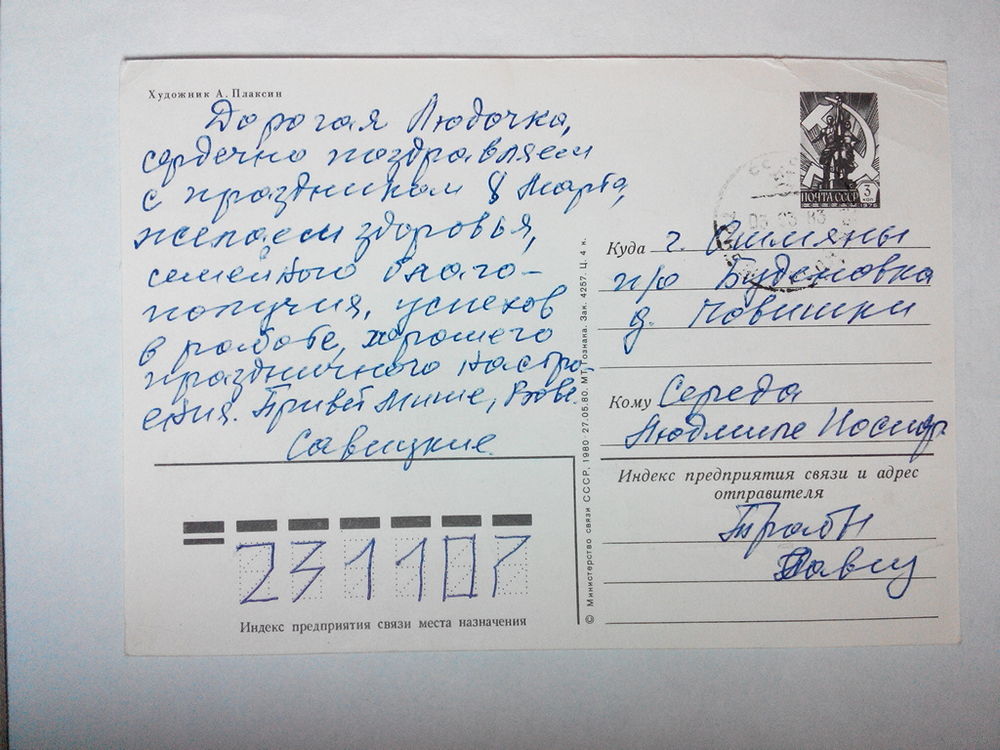 Художник А. Плаксин
Дорогая Людочка,
сердечно поздравляем
с праздником 8 Марта,
желаем здоровья,
семейного благо-
получия, успехов
в работе, хорошего
праздничного настро-
ения. Привет Мише, Вове.
Савицкие.
ПОЧТА СССР 3 коп
1976
03 83
Куда г. Ошмяны
п/о Будёновка
д. Повишни
Кому Середа
Людмиле Иосифо
Индекс предприятия связи и адрес
отправителя
Савиц
231107
Индекс предприятия связи места назначения
© Министерство связи СССР, 1980 27.05.80. МТ Гознака. Зак. 4257. Ц. 4 к.